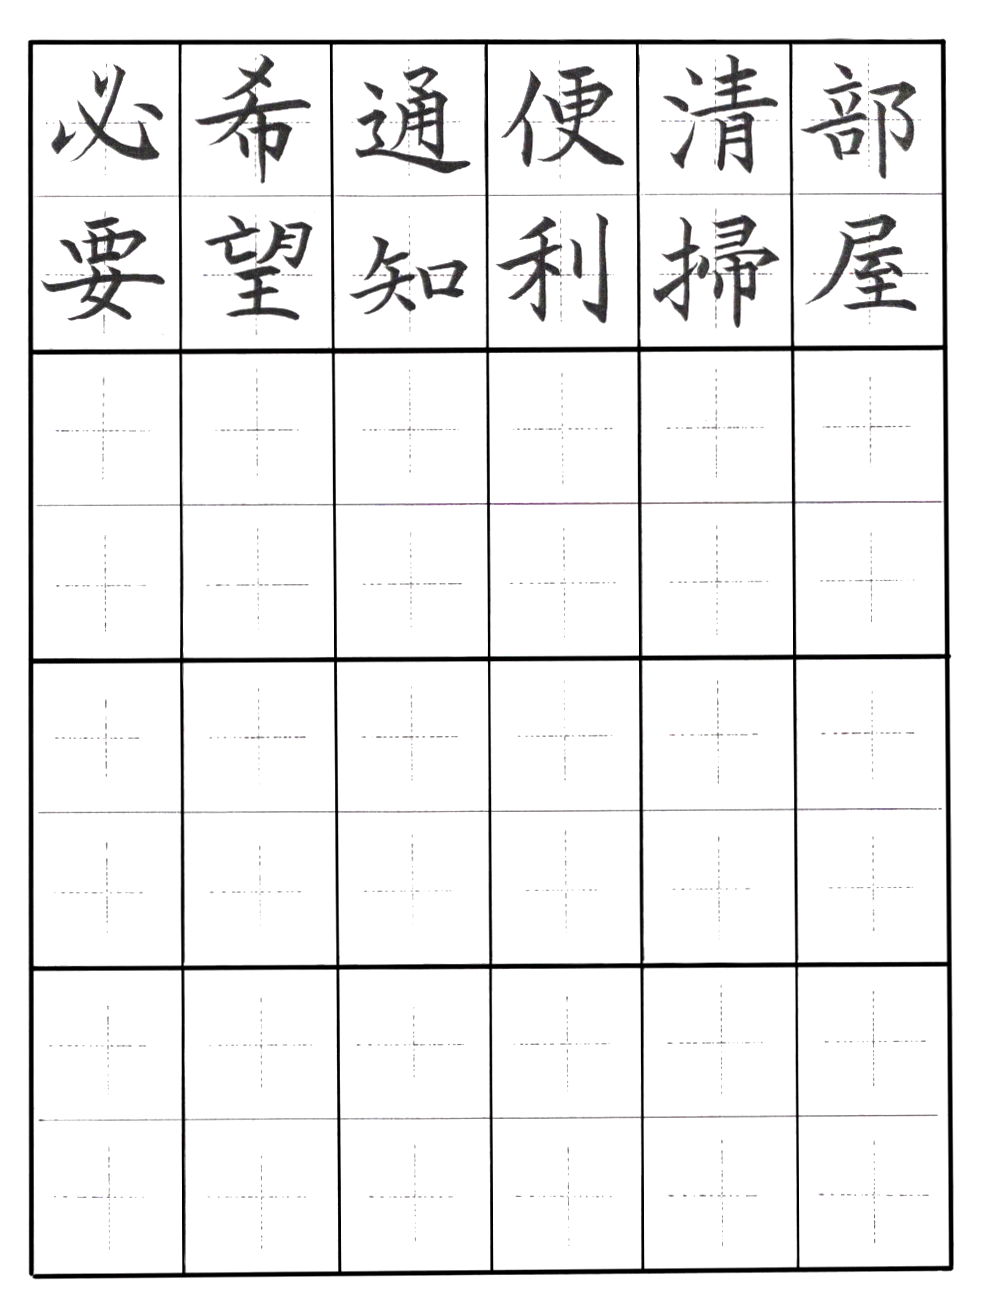 部屋
清掃
便利
通知
希望
必要